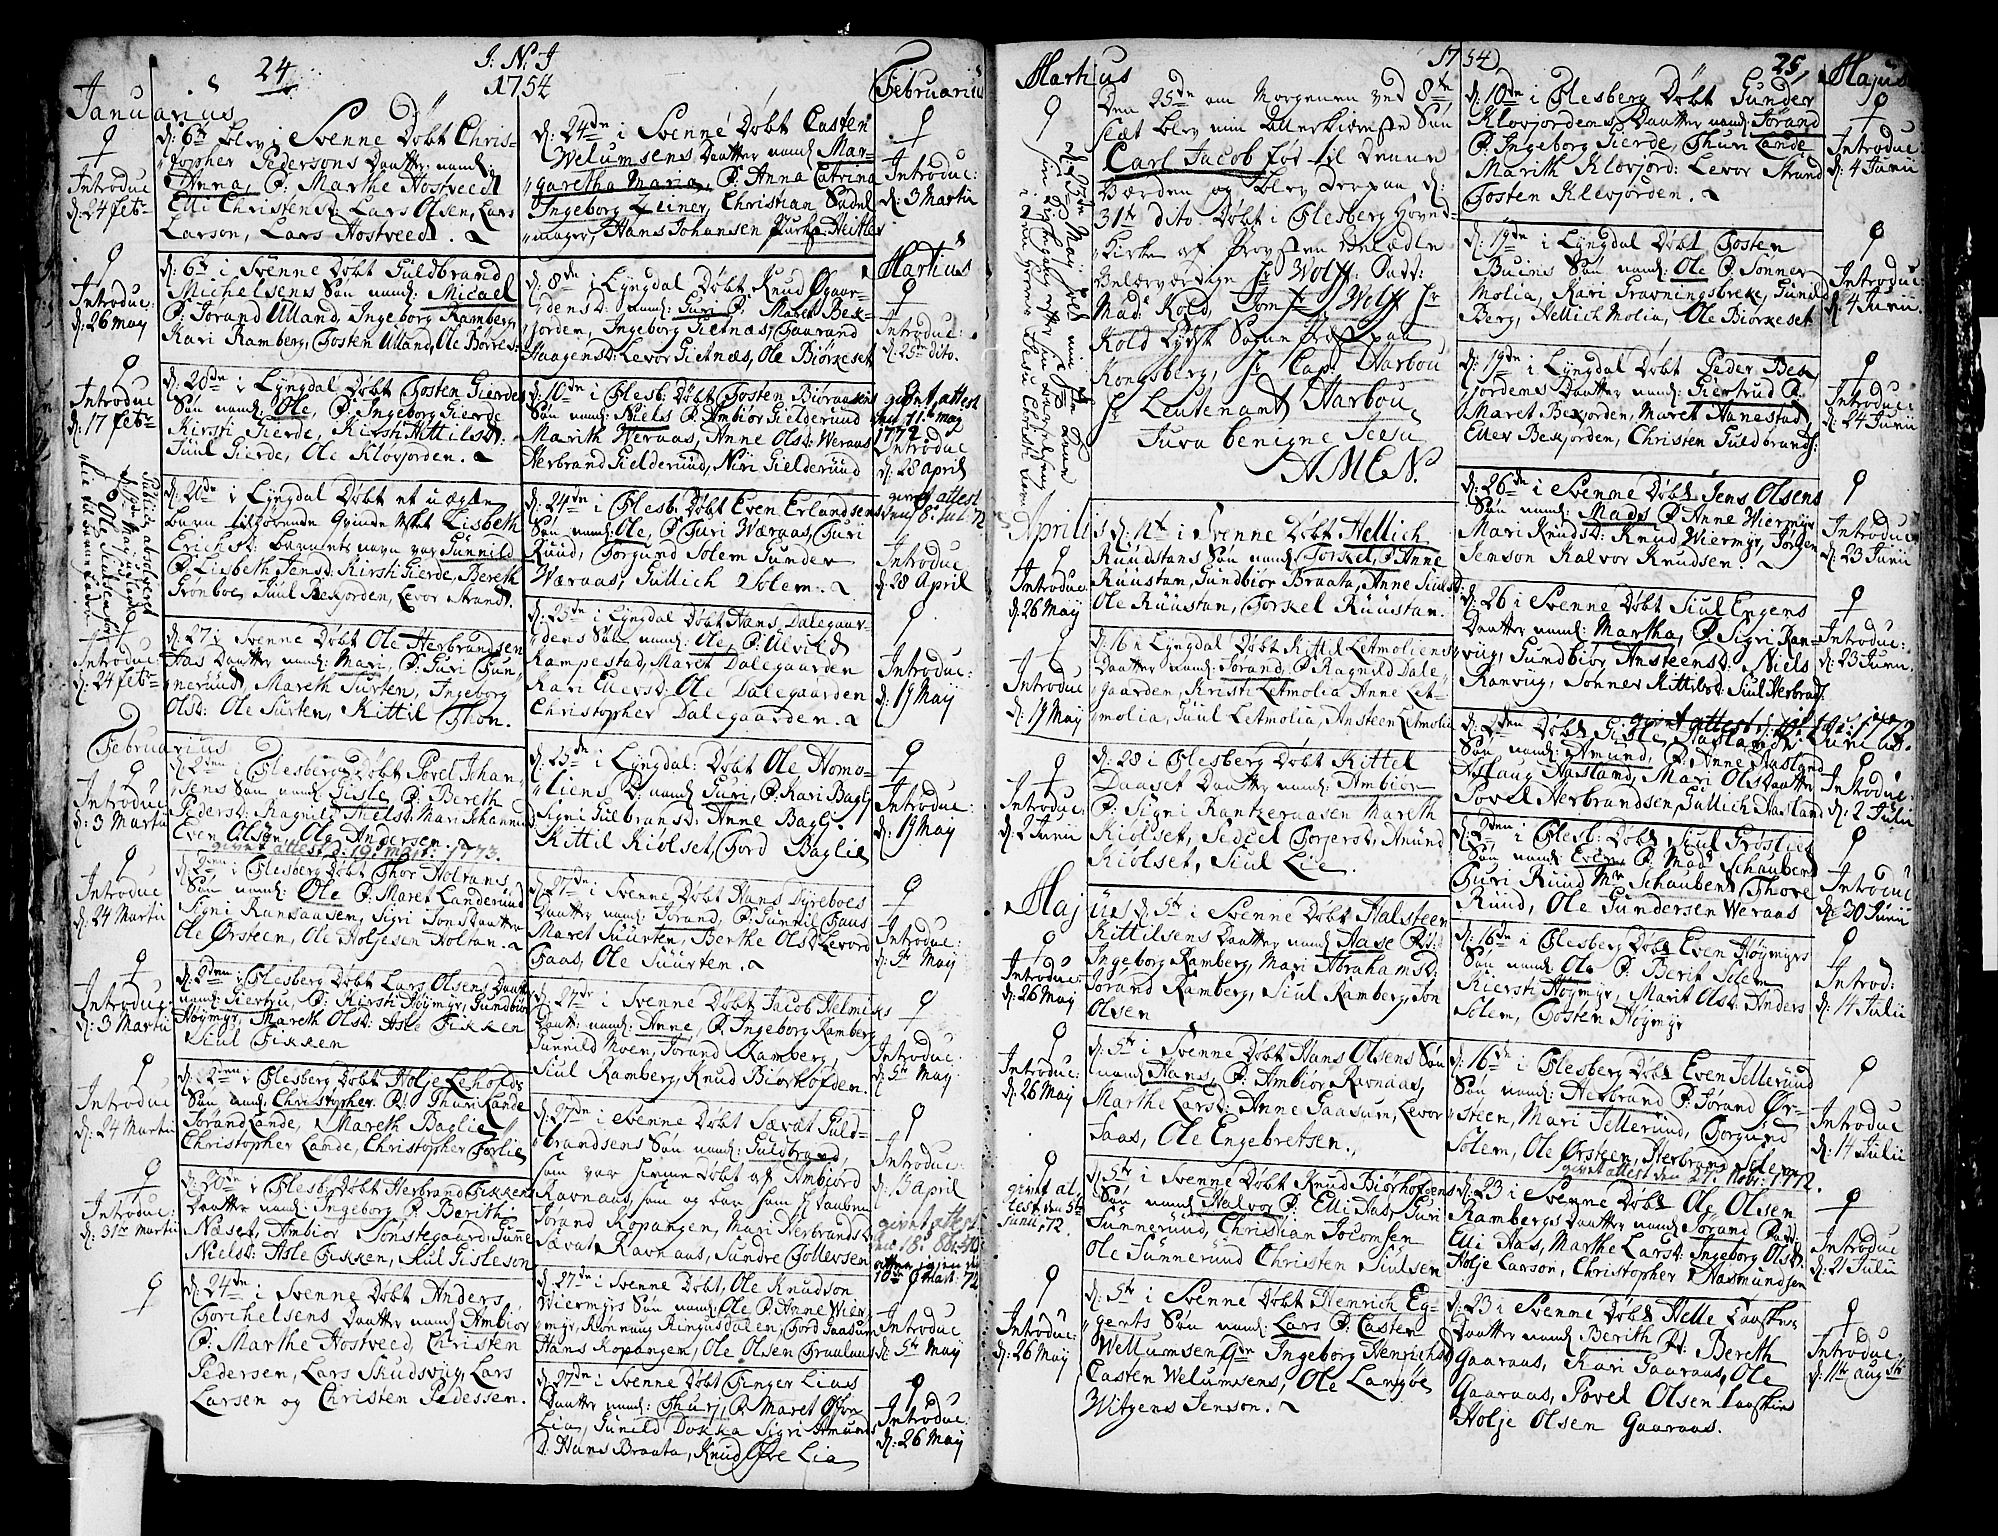 24
J. N. J
1754
Januarius
d: 6te blev i Svenne Døbt Chris-
topher Pedersens Daatter namd:
Anna, P: Marthe Hostveed
Elli Christensd: Lars Olsen, Lars
Larson, Lars Hostveed.
Introduc
d: 24 febr
d: 6te i Svenne Døbt Guldbrand
Michelsens Søn namd: Micael
P: Jorand Ulland, Ingeborg Ramberg,
Kari Ramberg, Tosten Ulland, Ole Børres:
Introduc:
d: 26 may
d: 20de i Lyngdal Døbt Tosten Gierdes
Søn namd: Ole, P: Ingeborg Gierde
Kirsti Gierde, Kirsti Kittilsd:
Juul Gierde, Ole Klovjorden.
Introduc
d: 17 febr
d: 20de i Lyngdal Døbt et uægte
barn tilhørende Qvinde Msk Lisbeth
Erichsd: barnets navn var Gunnild
P: Lisbeth Jensd: Kirsti Gierde, Bereth
Grønboe, Juul Bekjorden, Levor Strand.
d: 27 i Svenne Døbt Ole Herbrandsen
Aas Daatter namd: Mari, P: Guri Gun-
nerüüd, Mareth Surten, Ingeborg
Olsd: Ole Surten, Kittil Thon.
Introduc:
d: 24 febr
Februarius
d: 2den i Flesberg Døbt Povel Johan-
sens Søn namd: Gisle, P: Bereth
Pedersd: Ragnild Nielsd: Mari Johannis
Even Olsen, Ole Andersen.
givet attest d. 19. mart: 1773.
Introduc:
d: 3 Martii
d: 2den i Flesberg Døbt Thor Holtans
Søn namd: Ole P: Maret Landerüüd
Signi Ransaasen, Sigri Jons Daatter
Ole Ørsteen, Ole Holjesen Holtan.
Introduc
d: 24 Martii
d: 2den i Flesberg Døbt Lars Olsens Daatt:
namd: Giertru P: Kirsti Høymyr, Gundbiør
Høymyr, Mareth Olsd: Asle Fikken
Siul Fikken
Introduc:
d: 3 Martii
d: 2den i Flesberg Døbt Holje Lehofds
Søn namd: Christopher P: Thuri Lande
Jørand Lande, Mareth Baglie
Christopher Lande, Christopher Forlie
Introduc
d: 24 Martii
d: 20de i Flesb: Døbt Herbrand Fikkens
Daatter namd: Ingeborg P: Berith
Næset, Ambiør Tønstegaard, Gune
Nielsd: Asle Fikken, Siul Gisleson
Introduc:
d: 31te Martii
d: 24de i Svenne Døbt Anders
Torchelsens Daatter namd: Ambiør
P: Marthe Hostveed, Christen
Pedersen, Lars Skudsvig, Lars
Larsen og Christen Pedessen.
Februarius
d: 24de i Svenne Døbt Casten
Welumsens Daatter namd: Mar-
garetha Maria, P: Anna Catrina
Ingeborg Zeiner, Christian Sadel
mager, Hans Johansen
Introduc:
d: 3 Martii
Martius
d: 8de i Lyngdal Døbt Knud Øgaar-
dens D: namd: Guri P: Maret Bek-
jorden, Ingeborg Gietnæs, Gaarand
Haagensd: Levor Gietnæs, Ole Biørkeset
Introduc:
d: 25de dito.
d: 10de i Flesb: Døbt Tosten Biøraaens
Søn namd: Niels P: Ambiør Gielderüüd
Marith Weraas, Anne Olsd: Weraas
Herbrand Gielderüüd, Niri Gielderüüd
givet attest
den 11te may
1772
Introduc
d: 28 april
d: 24de i Flesb: Døbt Even Erlandsens
Søn namd: Ole, P: Guri Wæraas, Guri
Rüüd, Torgund Solem Gunder
Wæraas, Gullich Solem.
givet attest
den 6. Jul. 72
Introduc
d: 28 April
d: 25de i Lyngdal Døbt Hans Dalegaar-
dens Søn namd: Ole, P: Ulvild
Rampestad, Maret Dalegaarden
Kari Elievsd: Ole Dalegaarden
Christopher Dalegaarden.
Introduc:
d: 19 May
d: 25de i Lyngdal: Døbt Ole Homo-
liens D: namd: Guri, P: Kari Bagli
Signi Guebransd: Anne Bagli
Kittil Kiølset, Tord Baglie
Introduc:
d: 19 May
d: 27de i Svenne Døbt Hans Dyreboes
Daatter namd: Jørand, P: Gunnil Faas
Maret Suurten, Berthe Olsd: Levord
Faas, Ole Suurten.
Introduc:
d: 5te May
d: 27de i Svenne Døbt Jacob Helmiks
Daatt: namd: Anne, P: Ingeborg Ramberg
Gunnild Moen, Jørand Ramberg,
Siul Ramberg, Knud Biørkhofden.
Introduc:
d: 5te May
d: 27de i Svenne Døbt Sævat Guld-
brandsens Søn namd: Guldbrand,
som var hiemedøbt af Ambiørd
Ravnaas, som og bar ham til daaben
Jørand Kopangen, Mari Herbrandsd:
Savat Ravnaas, Gundre Tollevsen
Introduc:
d: 13 april
givet attest
den 18. 8br.
atter igien d:
10de Mart: 72
d: 27de i Svenne Døbt Ole Knudson
Wiermyrs Søn namd: Ole P: Anne Wier-
myr, Rønnaug Ringusdalen, Tord Gaasum
Hans Kopangen, Ole Olsen Traalaas
Introduc
d: 5te May
d: 27de i Svenne Døbt Finger Lias
Daatter namd: Thurj, P: Maret Øfre
Lia, Gunild Dokka Sigri Amunds
D: Hans Braata, Knud Øvre Lia
Introduc:
d: 26 May
1754
25,
Martius
Den 25de om Morgenen ved 8te
slæt blev min Allerkiæreste Søn
Carl Jacob fød til denne
Værden og blev derpaa d:
31te dito Døbt i Flesberg Hoved-
Kirke af Provsten Velædle
Velærværdige Hr Wolff: Sadd:
Mad: Kold, Jomfr Wolff Hr
Kold Lydst Sogne Præst paa
Kongsberg, Hr Cap: Harbou
Hr Leutenant Harbou
Jura benigne Jesu
AMEN.
Aprilis d: 4te i Svenne Døbt Hellich
Ruudstans Søn namd: Torkel, P: Anne
Ruustan, Gundbiør Braata, Anne Siulsd:
Ole Rüüstan, Torkel Rüüstan.
Introduc:
d: 26 May
d: 16 n Lyngdal Døbt Kittil Letmoliens
Daatter namd: Jorand, P: Ragnild Dale-
gaarden, Kristi Letmolia Anne Let-
molia, Juul Letmolia, Ansteen Letmolia
Introduc
d: 19 May
d: 28 i Flesberg Døbt Kittel
Daaset Daatter namd: Ambiør
P: Signi Rantzeraasen Mareth
Kiolset, Sidcel Torjersd: Amünd
Kiolset, Siul Lie.
Introduc:
d: 2 Junii
Majus d: 5te i Svenne Døbt Halsteen
Kittilsens Daatter namd: Aase P:
Ingeborg Ramberg, Mari Abrahamsd:
Jørand Ramberg, Siul Ramberg Jøn
Olsen
Introduc:
d: 26 May
d: 5te i Svenne Døbt Hans Olsens Søn
namd: Hans, P: Ambiør Ravnaas,
Marthe Larsd: Anne Gaasum, Levor
Faas, Ole Engebretsen.
Introduc:
d: 26 May
d: 5te i Svenne Døbt Knud Biørhofdens
Søn namd: Halvor P: Elli Aas, Guri
Tunnerüüd, Christian Jocomsen
Ole Tunnerüüd Christen Siulsen
givet at
test den 5te
Junii 72.
d: 5te i Svenne Døbt Henrich Eg-
gerts Søn namd: Lars P: Casten
Wellumsens Qde Ingeborg Henrichsd:
Casten Welumsens, Ole Langbe
Witzens Jenson.
Introduc:
d: 26 May
Majus
d: 10de i Flesberg Døbt Gunder
Klovjordens Daatter namd: Jorand
P: Ingeborg Gierde, Thuri Lande
Marith Klovjord: Levor Strand
Tosten Klevjorden.
Introduc:
d: 4 Junii
d: 19de i Lyngdal Døbt Tosten
Buins Søn namd: Ole P: Sønnev
Molia, Kari Gravningsbreke, Gunild
Berg, Hellich Molia, Ole Biørkeset
Introduc:
d: 4 Junii.
d: 19de i Lyngdal Døbt Peder Bek
jordens Daatter namd: Giertrud P:
Maret Bekjorden, Maret Hanestad,
Eller Bekjorden, Christen Guldbrands:
Introduc:
d: 24 Junii
d: 26de i Svenne Døbt Jens Olsens
Søn namd: Mads P: Anne Wiermyr
Mari Knudsd: Knud Wiermyr, Jørgen
Jenson Kalvor Knudsen.
Introduc:
d: 23 Junii
d: 26 i Svenne Døbt Siul Engens
Daatter namd: Martha, P: Sigri Ran-
vüg, Gundbiør Ansteensd: Niels
Ranvug, Sønnev Kittilsd: Siul Herbrands:
Introduc:
d: 23 Junii.
Junius.
d: 2den Døbt Gisle Aaslands
Søn namd: Amund, P: Anne Aasland
Aslaug Aasland, Mari Olsdaatter
Povel Herbrandsen, Gullich Aasland
Introduc:
d: 2 Julii
d: 2den i Flesb: Døbt Siul Grøslies
Søn namd: Even, P: Mad: Schaubert
Guri Rüüd Mr Schaubert Thore
Rüüd, Ole Gundersen Weraas
Introduc:
d: 30 Junii
d: 16de i Flesberg Døbt Even Høymyrs
Søn namd: Ole P: Berit Selem
Kiersti Høymyr, Marit Olsd: Anders
Solem, Tosten Høymyr
Introd:
d: 14 Julii
d: 16de i Flesberg Døbt Even Jellerüüd
Søn namd: Herbrand P: Jørand Ør-
steen, Mari Jellerüüd, Torgund
Solem, Ole Ørsteen, Herbrand Solem
Introduc
d: 14 Julii
givet attest den 27. Nobr: 1772.
d: 23 i Svenne Døbt Ole Olsen
Rambergs Daatter namd: Jorand Padd:
Elli Aas, Marthe Larsd: Ingeborg Olsd:
Holje Larson, Christopher Aasmundsen
Introduc
d: 21 Julii
d: 23 i Svenne Døbt Helle Laaskes
Daatter namd: Berith P: Bereth
Gaaraas, Kari Gaaraas, Ole
Gaaraas, Povel Olsen Laaskin
Holje Olsen Gaaraas.
Introduc
d: 11te augsti